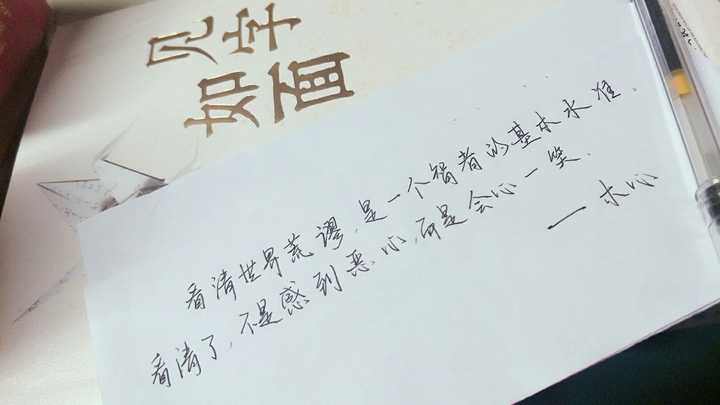 见字
如面
看清世界荒谬，是一个智者的基本水准．
看清了，不是感到恶心，而是会心一笑．
— 木心